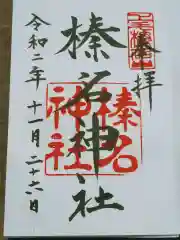 奉拝
榛名神社
榛名神社
令和二年十一月二十六日